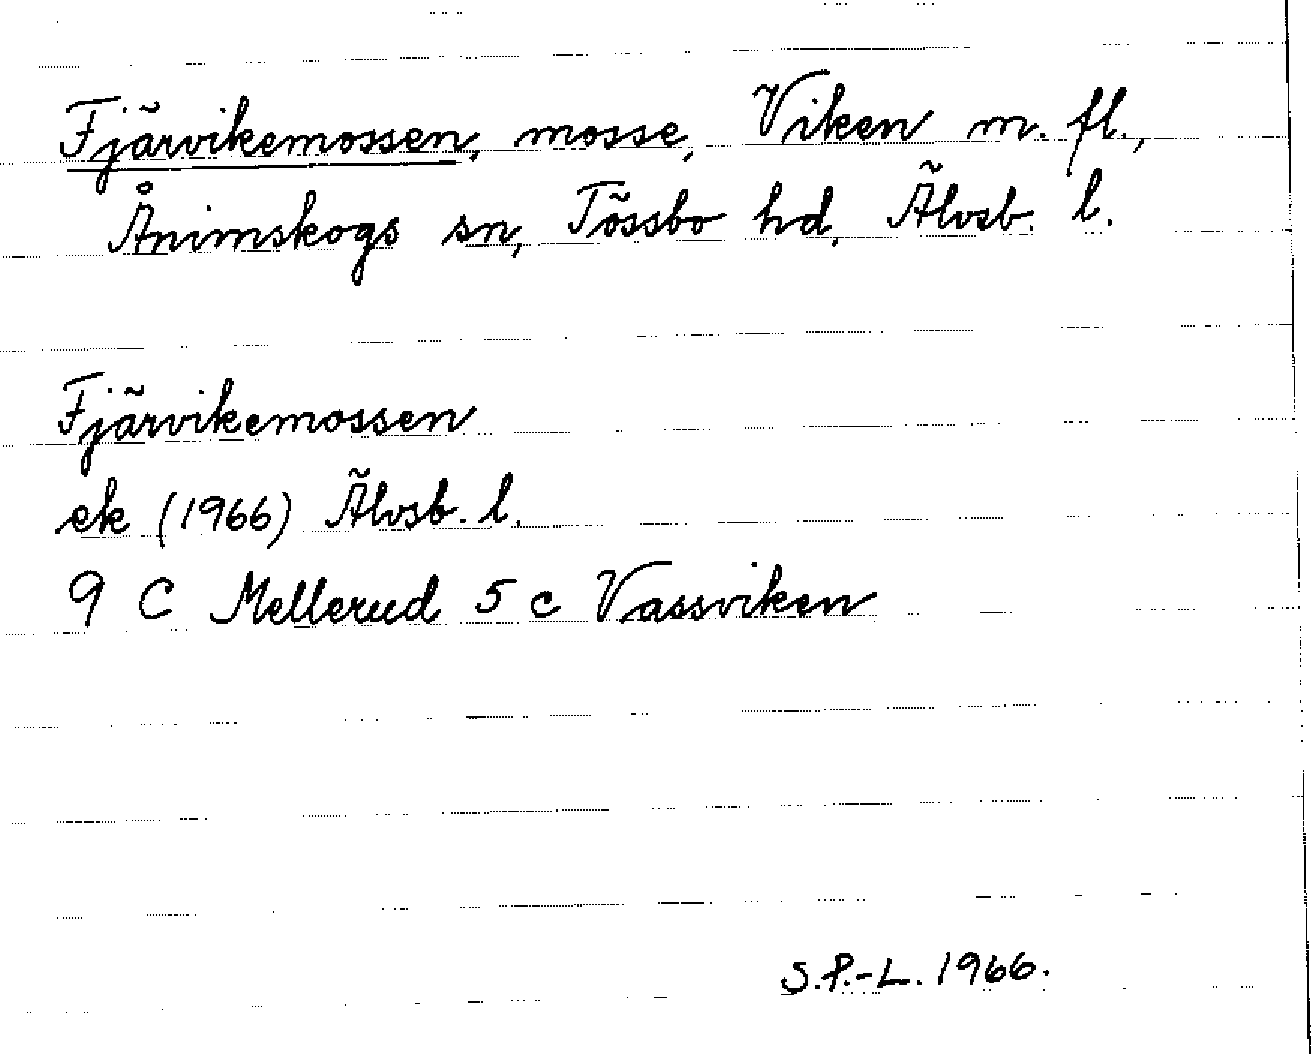 Fjärvikemossen, mosse, Viken m. fl.,
Ånimskogs sn, Tössbo hd, Älvsb. l.
Fjärvikemossen
ek (1966) Älvsb. l.
9 C Mellerud 5 c Vassviken
S.P.-L. 1966.